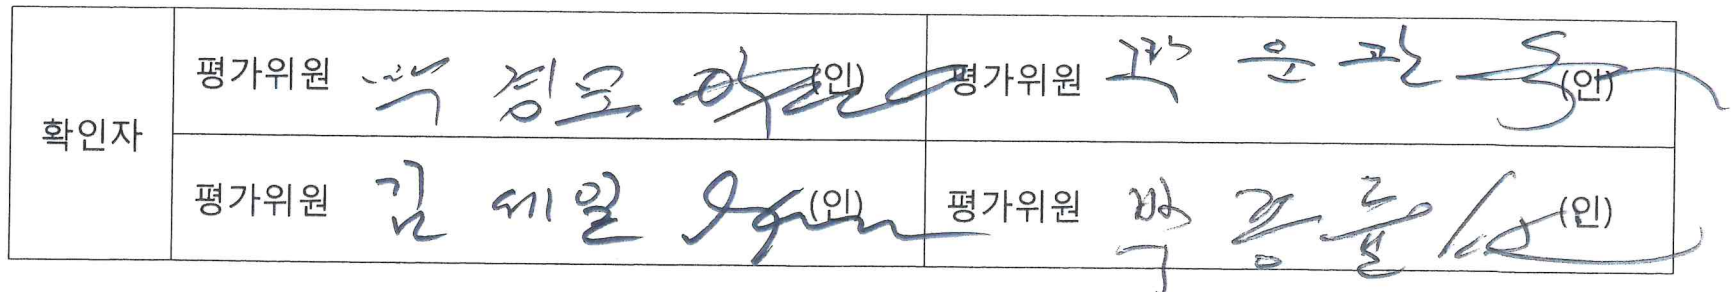 확인자
평가위원 박경모 (인) 평가위원 곽운관 (인)
평가위원 김세일 (인) 평가위원 박종률 (인)